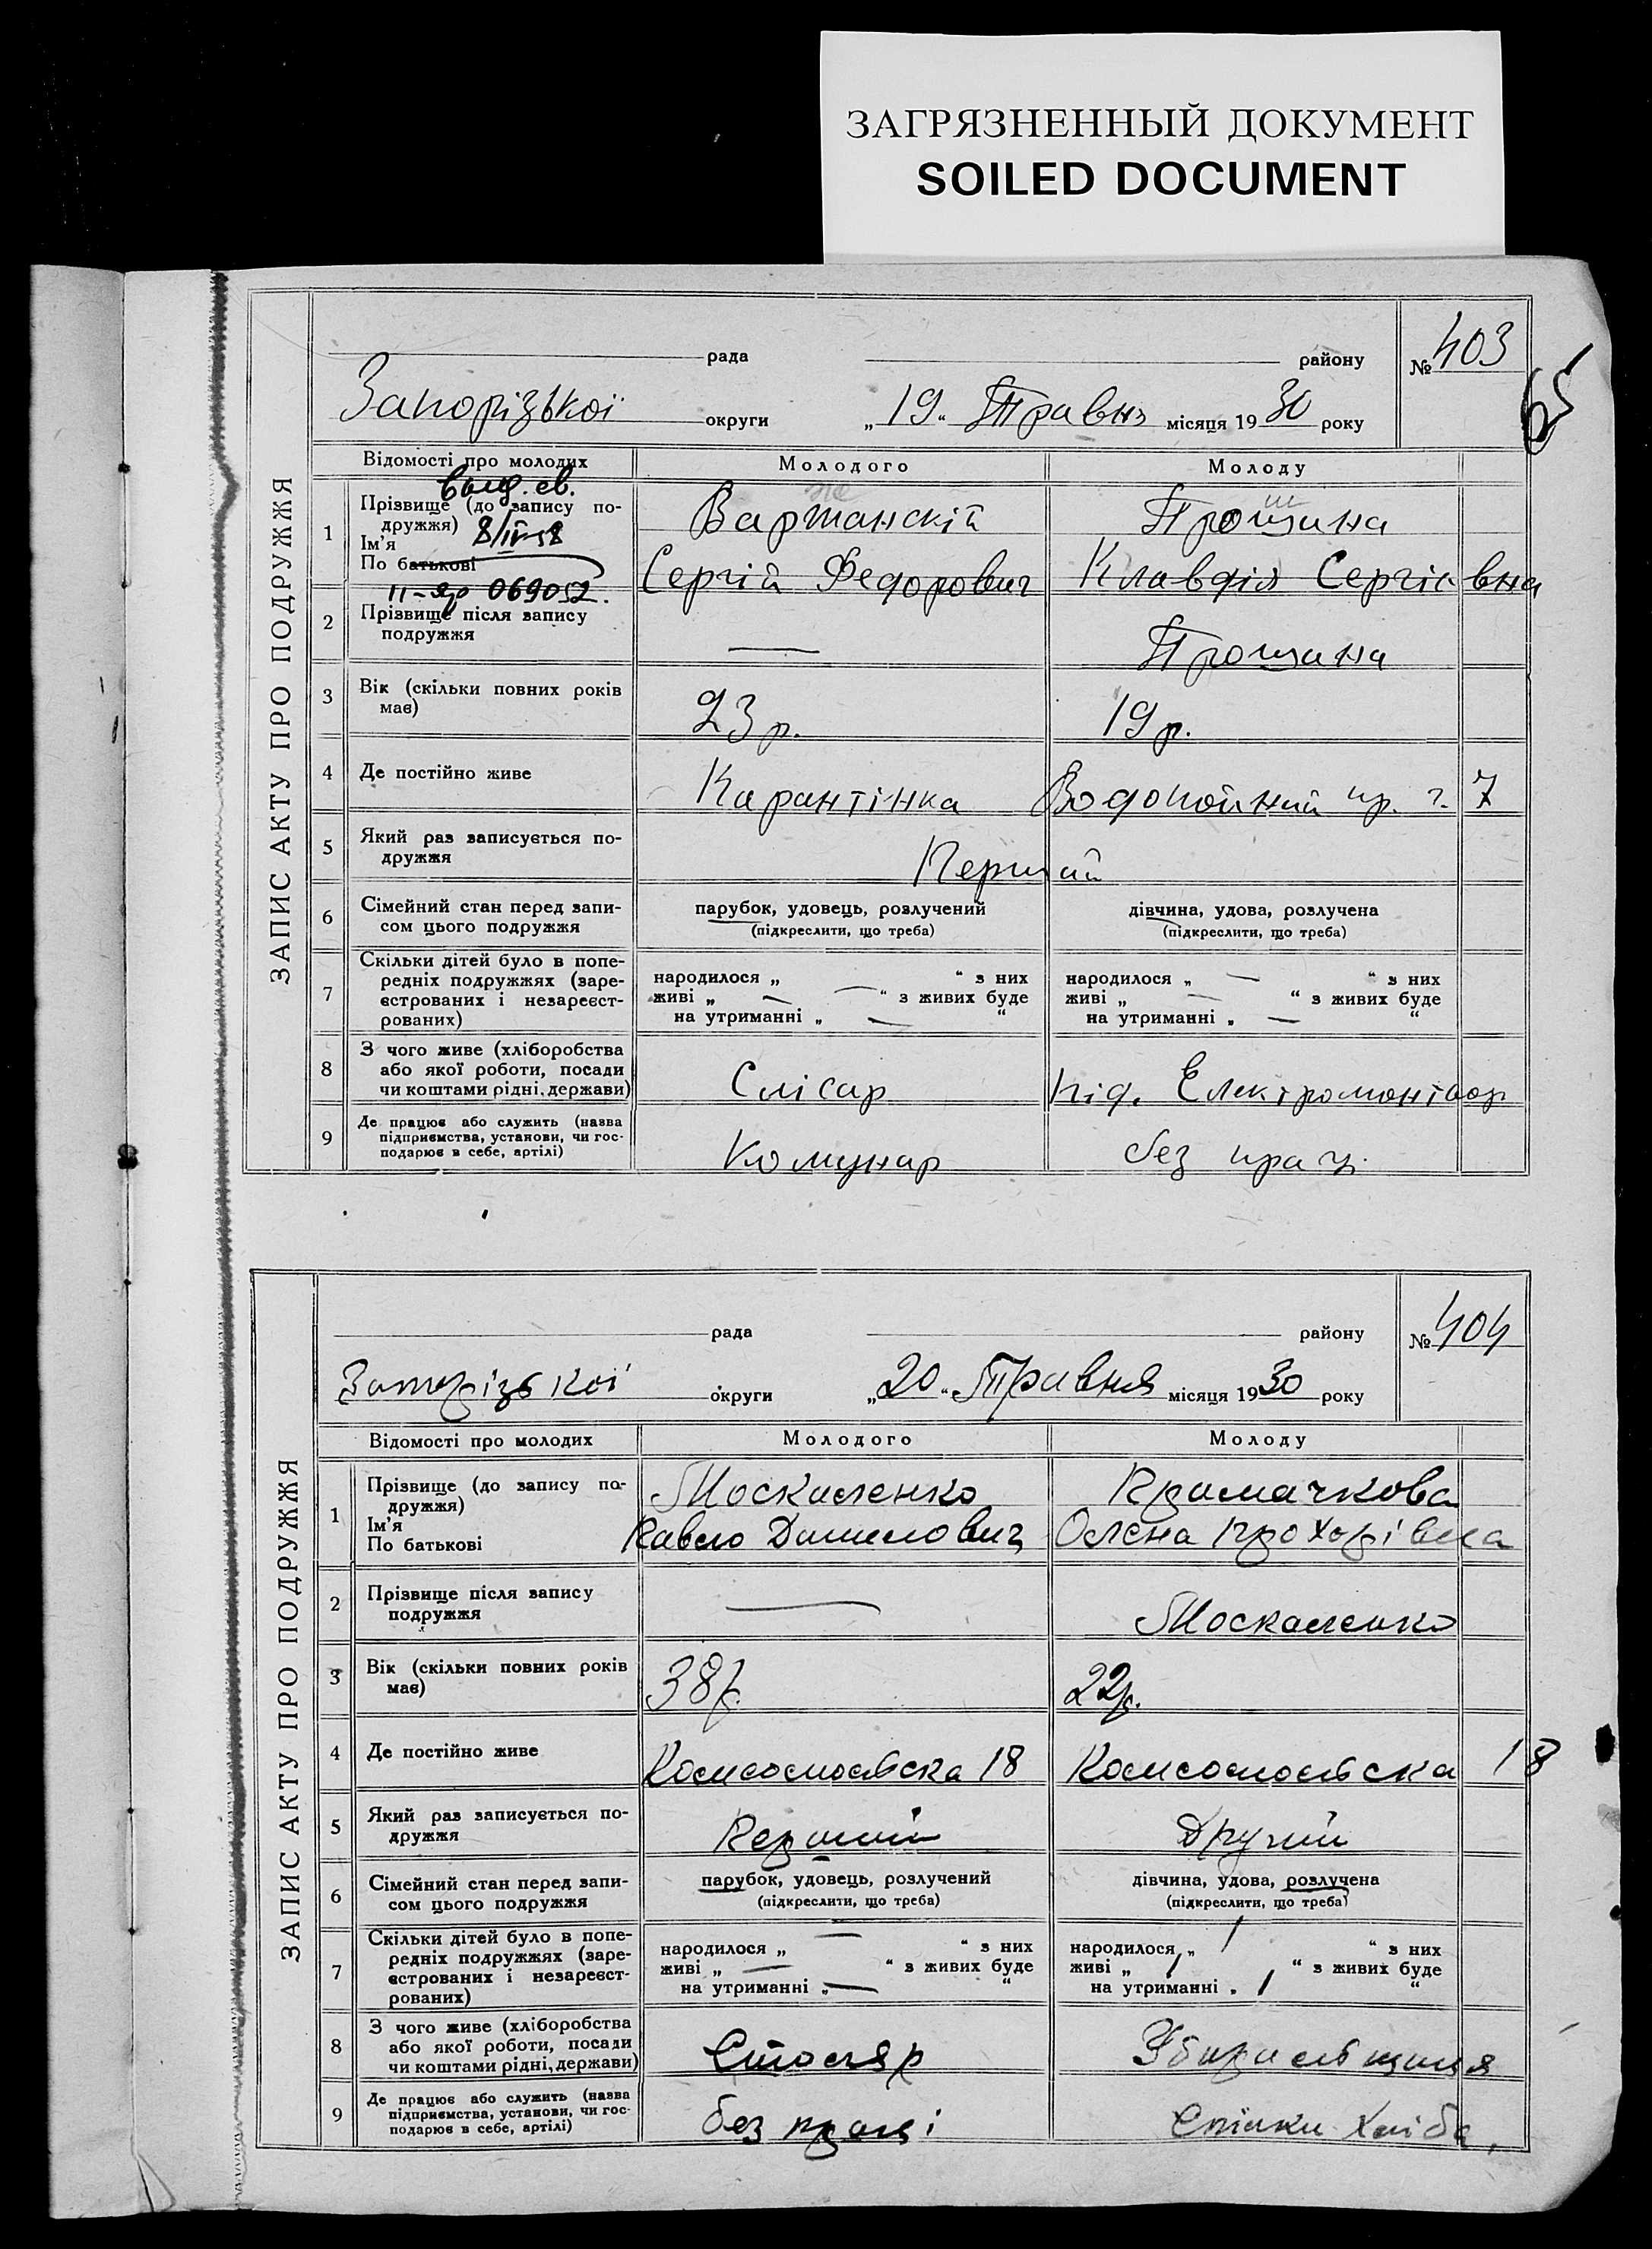 ЗАГРЯЗНЕННЫЙ ДОКУМЕНТ
SOILED DOCUMENT
65
ЗАПИС АКТУ ПРО ПОДРУЖЖЯ
рада району № 403
Запорізької округи „19“ Травня місяця 1930 року
Відомості про молодих Молодого Молоду
вид. св.
8/IV-58
II-яр 069052.
1 Прізвище (до запису по-
дружжя)
Ім'я
По батькові
Варжанскій Прощина
ш
Сергій Федорович Клавдія Сергієвна
2 Прізвище після запису
подружжя
— Прощина
3 Вік (скільки повних років
має)
23 р. 19 р.
4 Де постійно живе Карантінка Водопойний пр. 7
5 Який раз записується по-
дружжя
Перший
6 Сімейний стан перед запи-
сом цього подружжя
парубок, удовець, розлучений дівчина, удова, розлучена
(підкреслити, що треба) (підкреслити, що треба)
7 Скільки дітей було в попе-
редніх подружжях (заре-
єстрованих і незареєст-
рованих)
народилося „ — “ з них народилося „ — “ з них
живі „ — “ з живих буде живі „ — “ з живих буде
на утриманні „ — “ на утриманні „ — “
8 З чого живе (хліборобства
або якої роботи, посади
чи коштами рідні, держави)
Слісар під. Електромонтьор
9 Де працює або служить (назва
підприємства, установи, чи гос-
подарює в себе, артілі)
Комунар без прац.
ЗАПИС АКТУ ПРО ПОДРУЖЖЯ
рада району № 404
Запорізької округи „20“ Травня місяця 1930 року
Відомості про молодих Молодого Молоду
1 Прізвище (до запису по-
дружжя)
Ім'я
По батькові
Москаленко Крамачкова
Павло Данилович Олена Прохорівна
2 Прізвище після запису
подружжя
— Москаленко
3 Вік (скільки повних років
має)
38 р. 22 р.
4 Де постійно живе Комсомольска 18 Комсомольска 18
5 Який раз записується по-
дружжя
Перший Другий
6 Сімейний стан перед запи-
сом цього подружжя
парубок, удовець, розлучений дівчина, удова, розлучена
(підкреслити, що треба) (підкреслити, що треба)
7 Скільки дітей було в попе-
редніх подружжях (заре-
єстрованих і незареєст-
рованих)
народилося „ — “ з них народилося „ 1 “ з них
живі „ — “ з живих буде живі „ 1 “ з живих буде
на утриманні „ — “ на утриманні „ 1 “
8 З чого живе (хліборобства
або якої роботи, посади
чи коштами рідні, держави)
Столяр Убиральщиця
9 Де працює або служить (назва
підприємства, установи, чи гос-
подарює в себе, артілі)
без праці Спілки хліба,